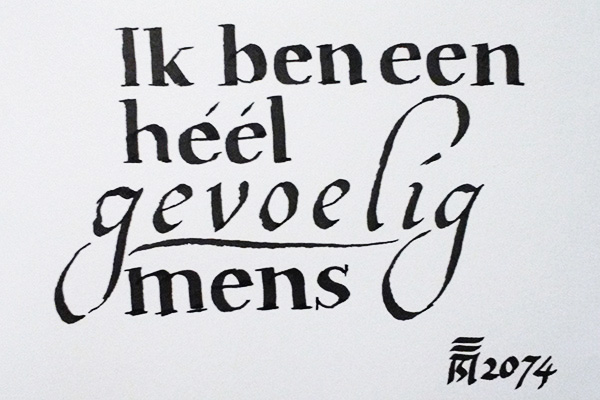 Ik ben een
héél
gevoelig
mens
2074